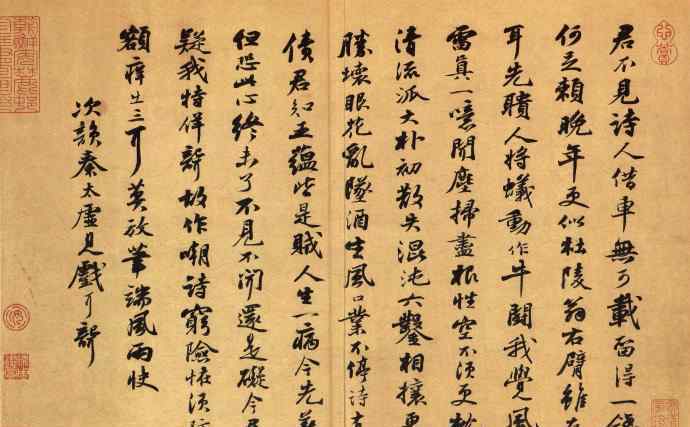 君不見詩人借車無可載留得一
何足賴晚年更似杜陵翁右臂雖
耳先聵人將蟻動作牛鬪我覺風
雷真一噫聞塵掃盡根性空不須更
清流派大朴初散失混沌六鑿相攘更
勝壞眼花亂墜酒生風口業不停詩有
債君知五蘊皆是賊人生一病今先差
但恐此心終未了不見不聞還是礙今君
疑我特佯聾故作嘲詩窮險怪須防
額痒出三耳莫放筆端風雨快
次韻秦太虛見戲耳聾